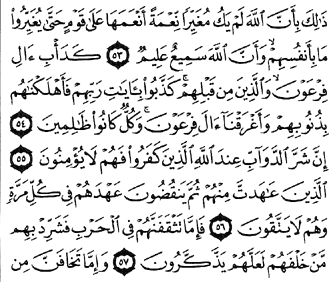 ذَٰلِكَ بِأَنَّ ٱللَّهَ لَمۡ يَكُ مُغَيِّرٗا نِّعۡمَةً أَنۡعَمَهَا عَلَىٰ قَوۡمٍ حَتَّىٰ يُغَيِّرُواْ
مَا بِأَنفُسِهِمۡ وَأَنَّ ٱللَّهَ سَمِيعٌ عَلِيمٞ ٥٣ كَدَأۡبِ ءَالِ
فِرۡعَوۡنَ وَٱلَّذِينَ مِن قَبۡلِهِمۡۚ كَذَّبُواْ بِـَٔايَٰتِ رَبِّهِمۡ فَأَهۡلَكۡنَٰهُم
بِذُنُوبِهِمۡ وَأَغۡرَقۡنَآ ءَالَ فِرۡعَوۡنَۚ وَكُلّٞ كَانُواْ ظَٰلِمِينَ ٥٤
إِنَّ شَرَّ ٱلدَّوَآبِّ عِندَ ٱللَّهِ ٱلَّذِينَ كَفَرُواْ فَهُمۡ لَا يُؤۡمِنُونَ ٥٥
ٱلَّذِينَ عَٰهَدتَّ مِنۡهُمۡ ثُمَّ يَنقُضُونَ عَهۡدَهُمۡ فِي كُلِّ مَرَّةٖ
وَهُمۡ لَا يَتَّقُونَ ٥٦ فَإِمَّا تَثۡقَفَنَّهُمۡ فِي ٱلۡحَرۡبِ فَشَرِّدۡ بِهِم
مَّنۡ خَلۡفَهُمۡ لَعَلَّهُمۡ يَذَّكَّرُونَ ٥٧ وَإِمَّا تَخَافَنَّ مِن